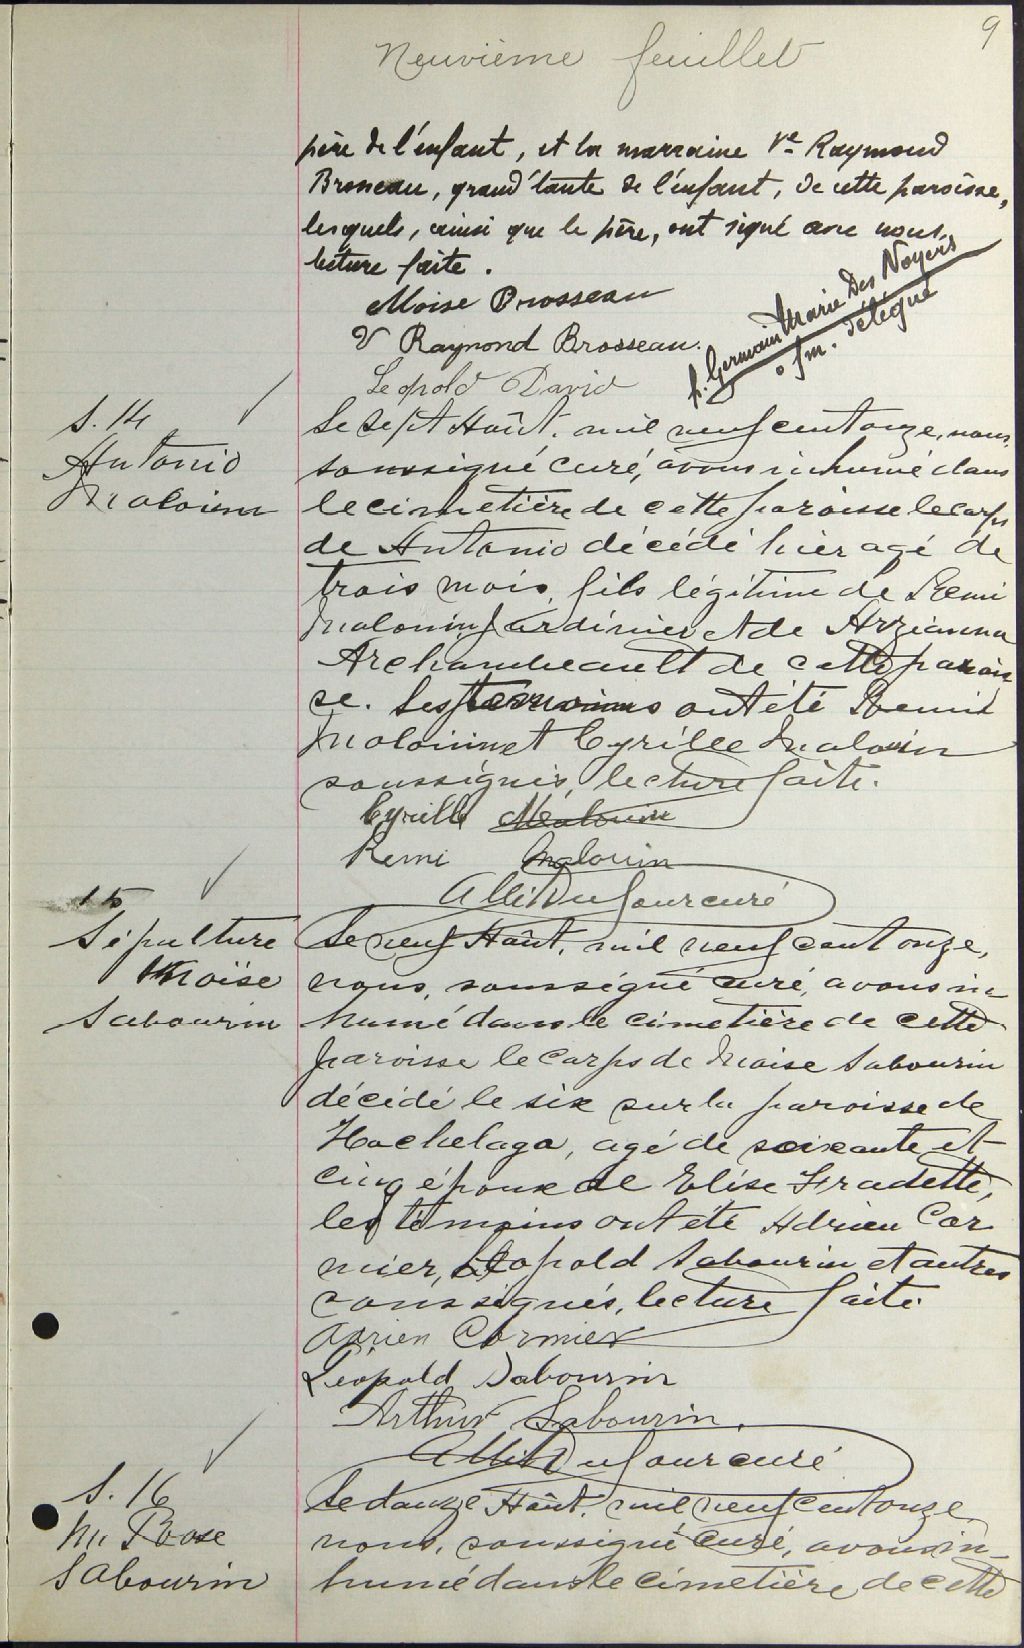 9
Neuvième feuillet
père de l'enfant, et la marraine Ve Raymond
Brosseau, grand'tante de l'enfant, de cette paroisse,
lesquels, ainsi que le père, ont signé avec nous,
lecture faite.
Moise Brosseau
V Raymond Brosseau.
Leopold David
f. Germain Marie Des Noyers
o fm. délégué
S. 14
Antonio
Malouin
Le sept Août, mil neuf cent onze, nous,
soussigné curé, avons inhumé dans
le cimetière de cette paroisse le corps
de Antonio décédé hier agé de
trois mois, fils légitime de Remi
Malouin jardinier et de Arzianna
Archambeault de cette parois
se. Les témoins ont été Remi
Malouin et Cyrille Malouin
soussignés, lecture faite.
Cyrille Malouin
Remi Malouin
Dufour curé
15
Sépulture
Moïse
Sabourin
Le neuf Août, mil neuf cent onze,
nous, soussigné curé, avons in
humé dans le cimetière de cette
paroisse le corps de Moise Sabourin
décédé le six sur la paroisse de
Hochelaga, agé de soixante et
cinq époux de Elise Fradette,
les témoins ont été Adrien Cor
mier, Léopold Sabourin et autres
soussignés, lecture faite.
Adrien Cormier
Léopold Sabourin
Arthur Sabourin.
Dufour curé
S. 16
M. Rose
Sabourin
Le douze Août, mil neuf cent onze,
nous, soussigné curé, avons in-
humé dans le cimetière de cette